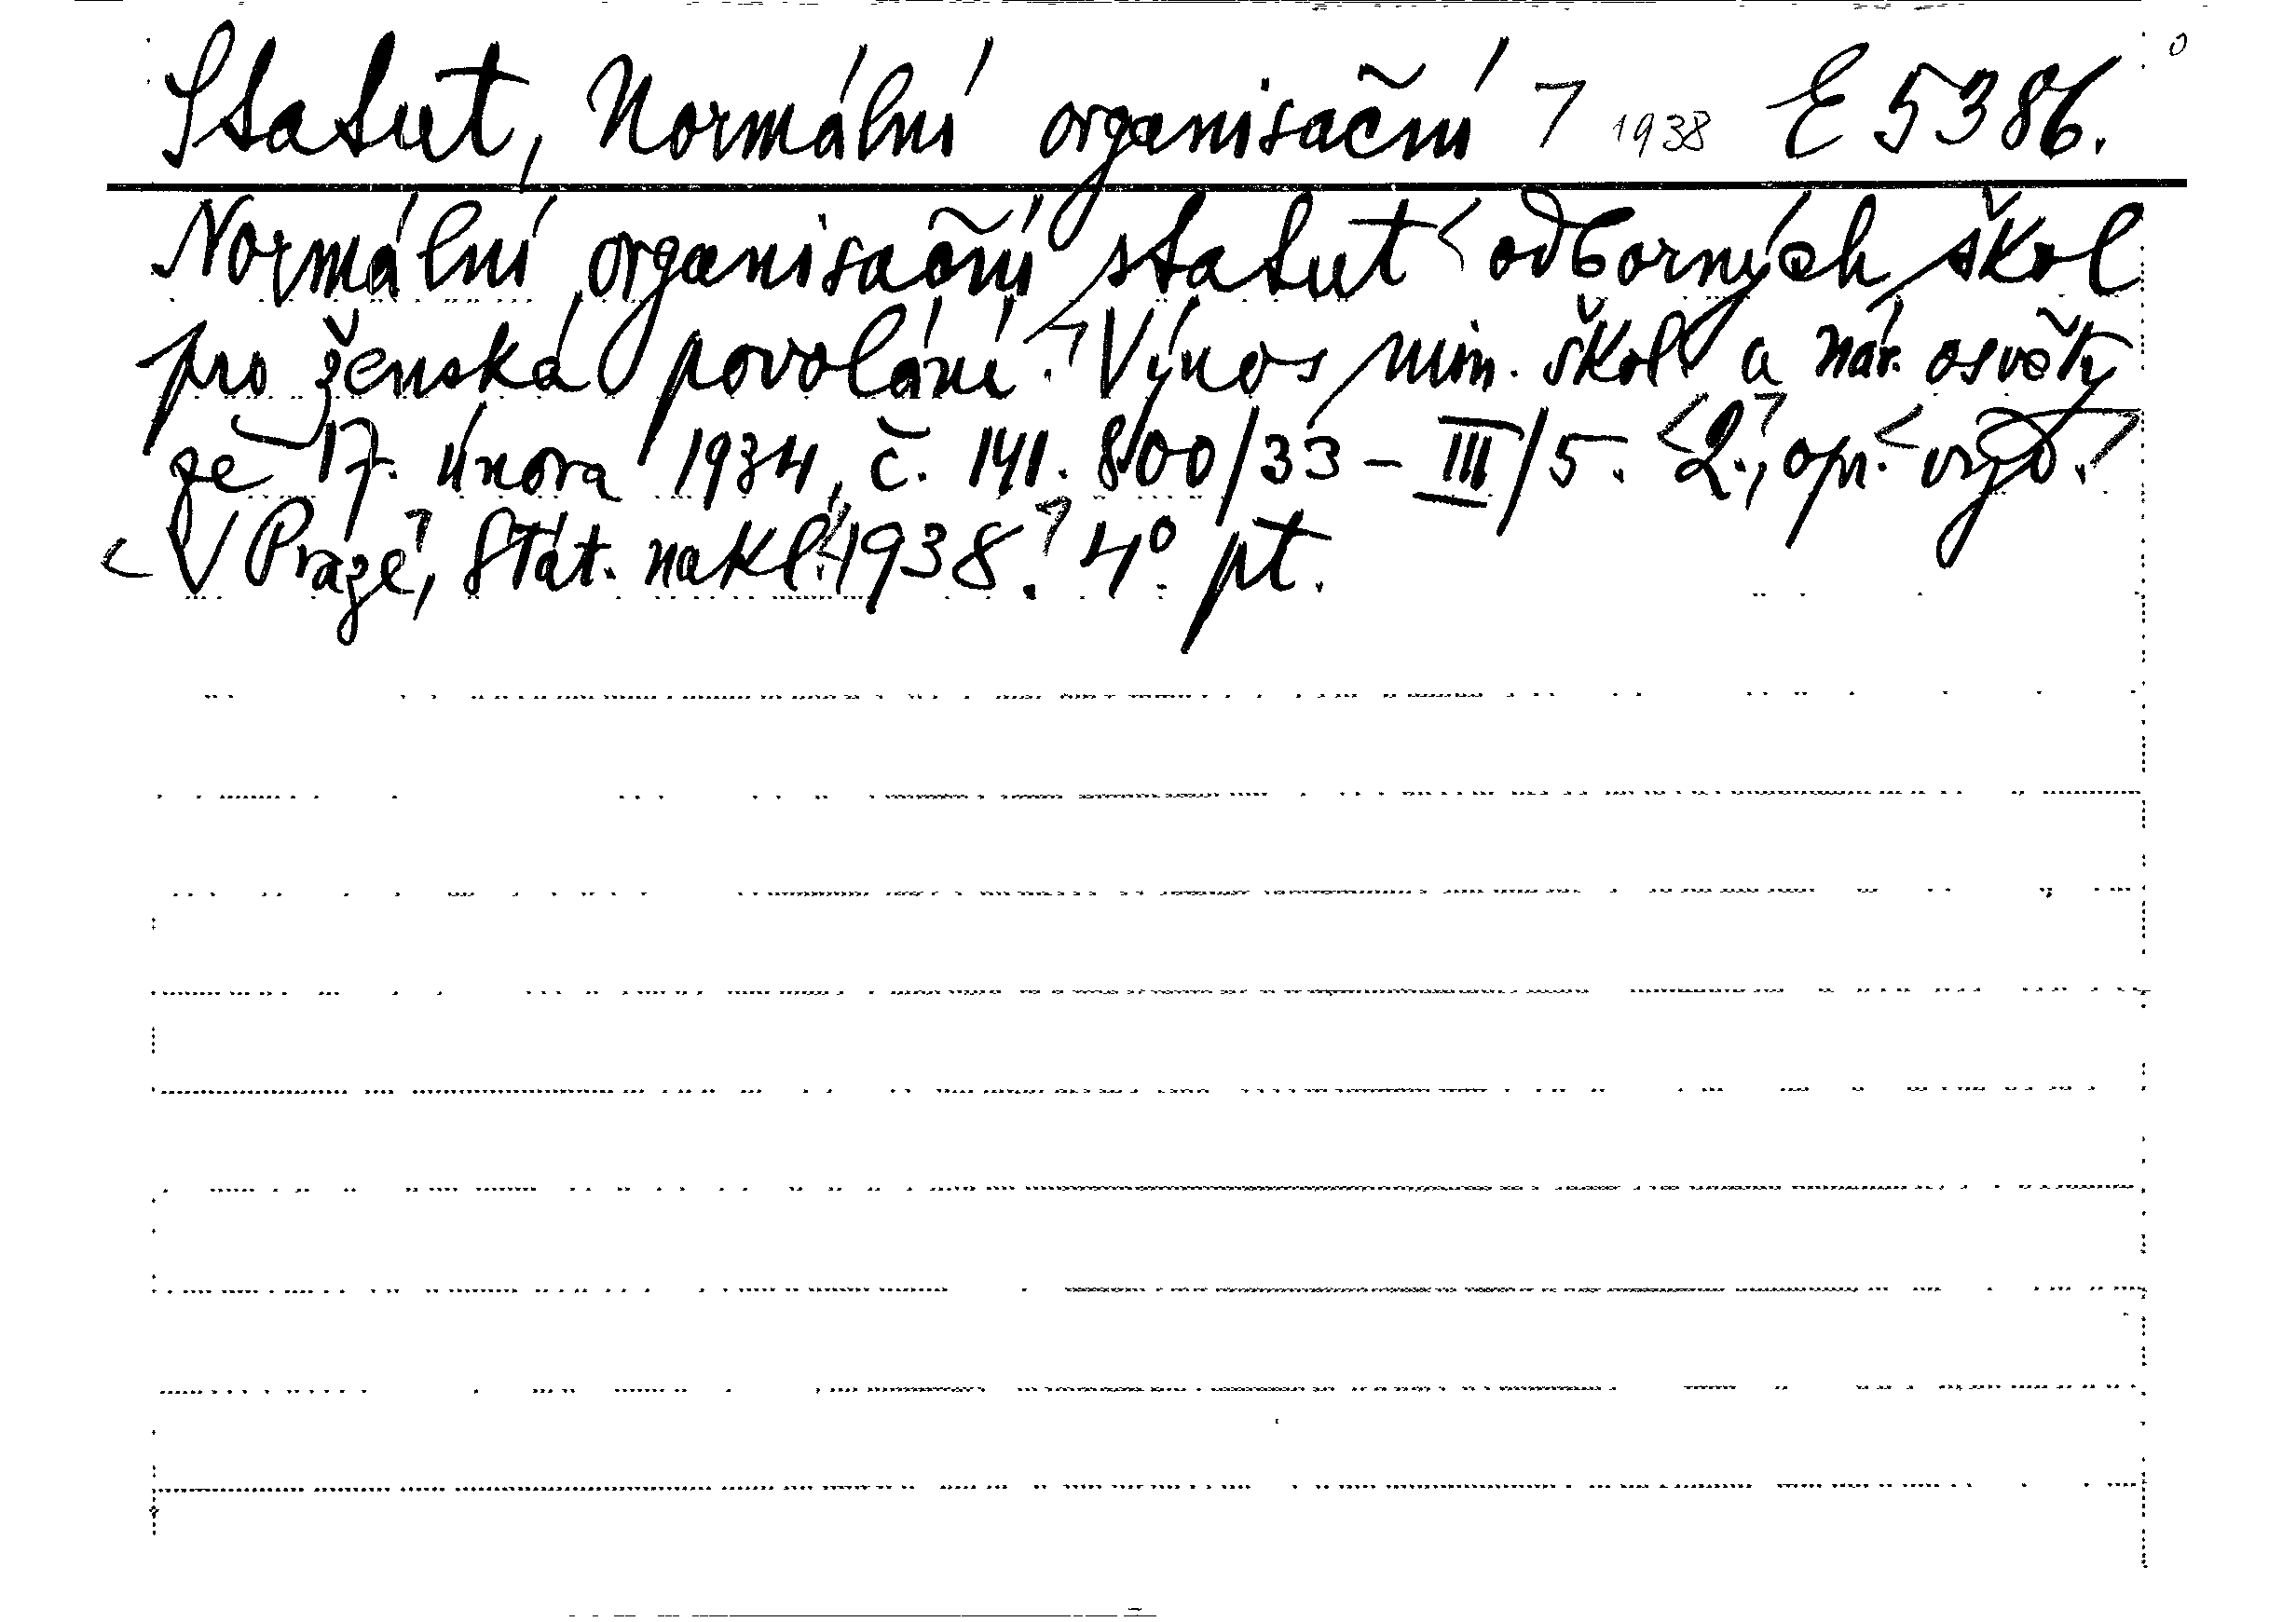 Statut, Normální organisační 7 1938 E 5386.
Normální organisační statut odborných škol
pro ženská povolání. Výnos min. škol. a nár. osvěty
ze 17. února 1934, č. 141.800/33-III/5. 2., opr. vyd.
V Praze, Stát. nakl. 1938. 4° pt.